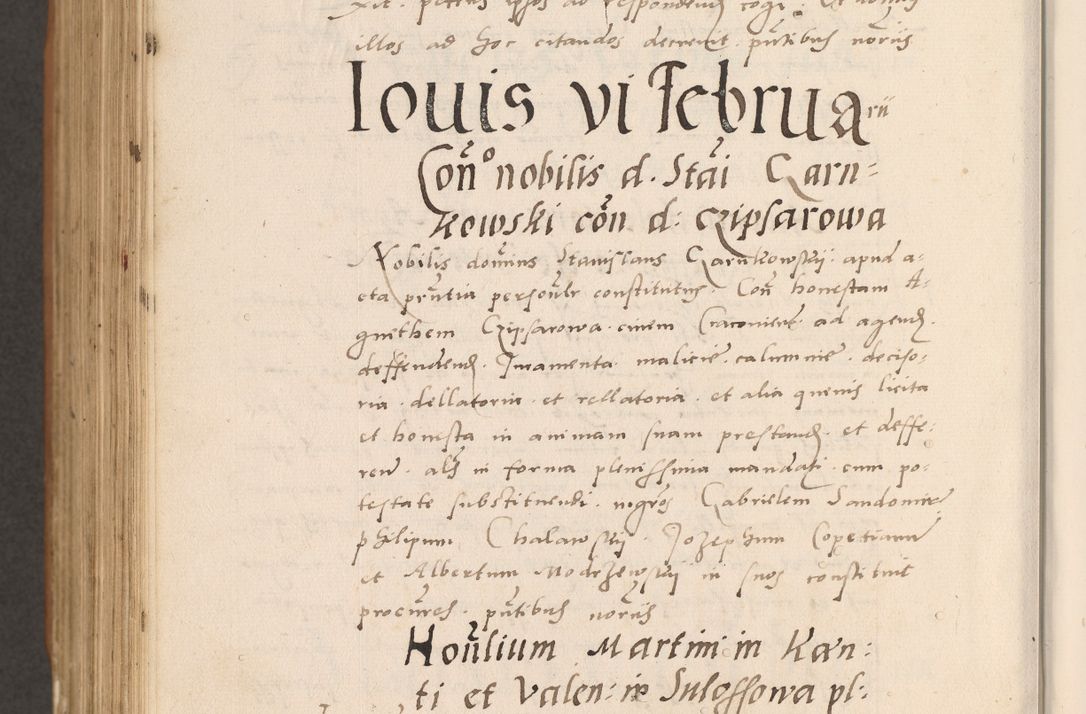 illos ad hoc citandos decrevit pñtibus noriis
Iouis vi Februarii
Con̄o nobilis d. Stāi Czarn-
kowski con̄ d: czipsarowa
Nobilis domīns Stanislaus Czarnkowskij apud a-
cta pn̄tia personl̄r constitutus. Con̄ honestam A-
gnethem Czipsarowa ciuem Cracouien̄ ad agend.
deffendend. Iuramenta malicie. calumnie. deciso-
ria. dellatoria. et rellatoria. et alia queuis licita
et honesta in animam suam prestand. et deffe-
ren̄. als in forma plenissima mandati. cum po-
testate substituendi. nigros Gabrielem Sandomir
philipum Chalawskij. Jozephum Copetianum
et Albertum Modrzewskij in suos constituit
procūres. pn̄tibus norūs
Hon̄lium Martini in Kan-
ti et Valen: in Sulossowa pl: